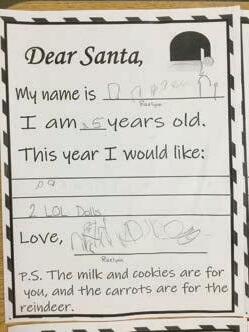 Dear Santa,
My name is
Raelynn
I am 5 years old.
This year I would like:
2 LOL Dolls
Love,
Raelynn
P.S. The milk and cookies are for
you, and the carrots are for the
reindeer.